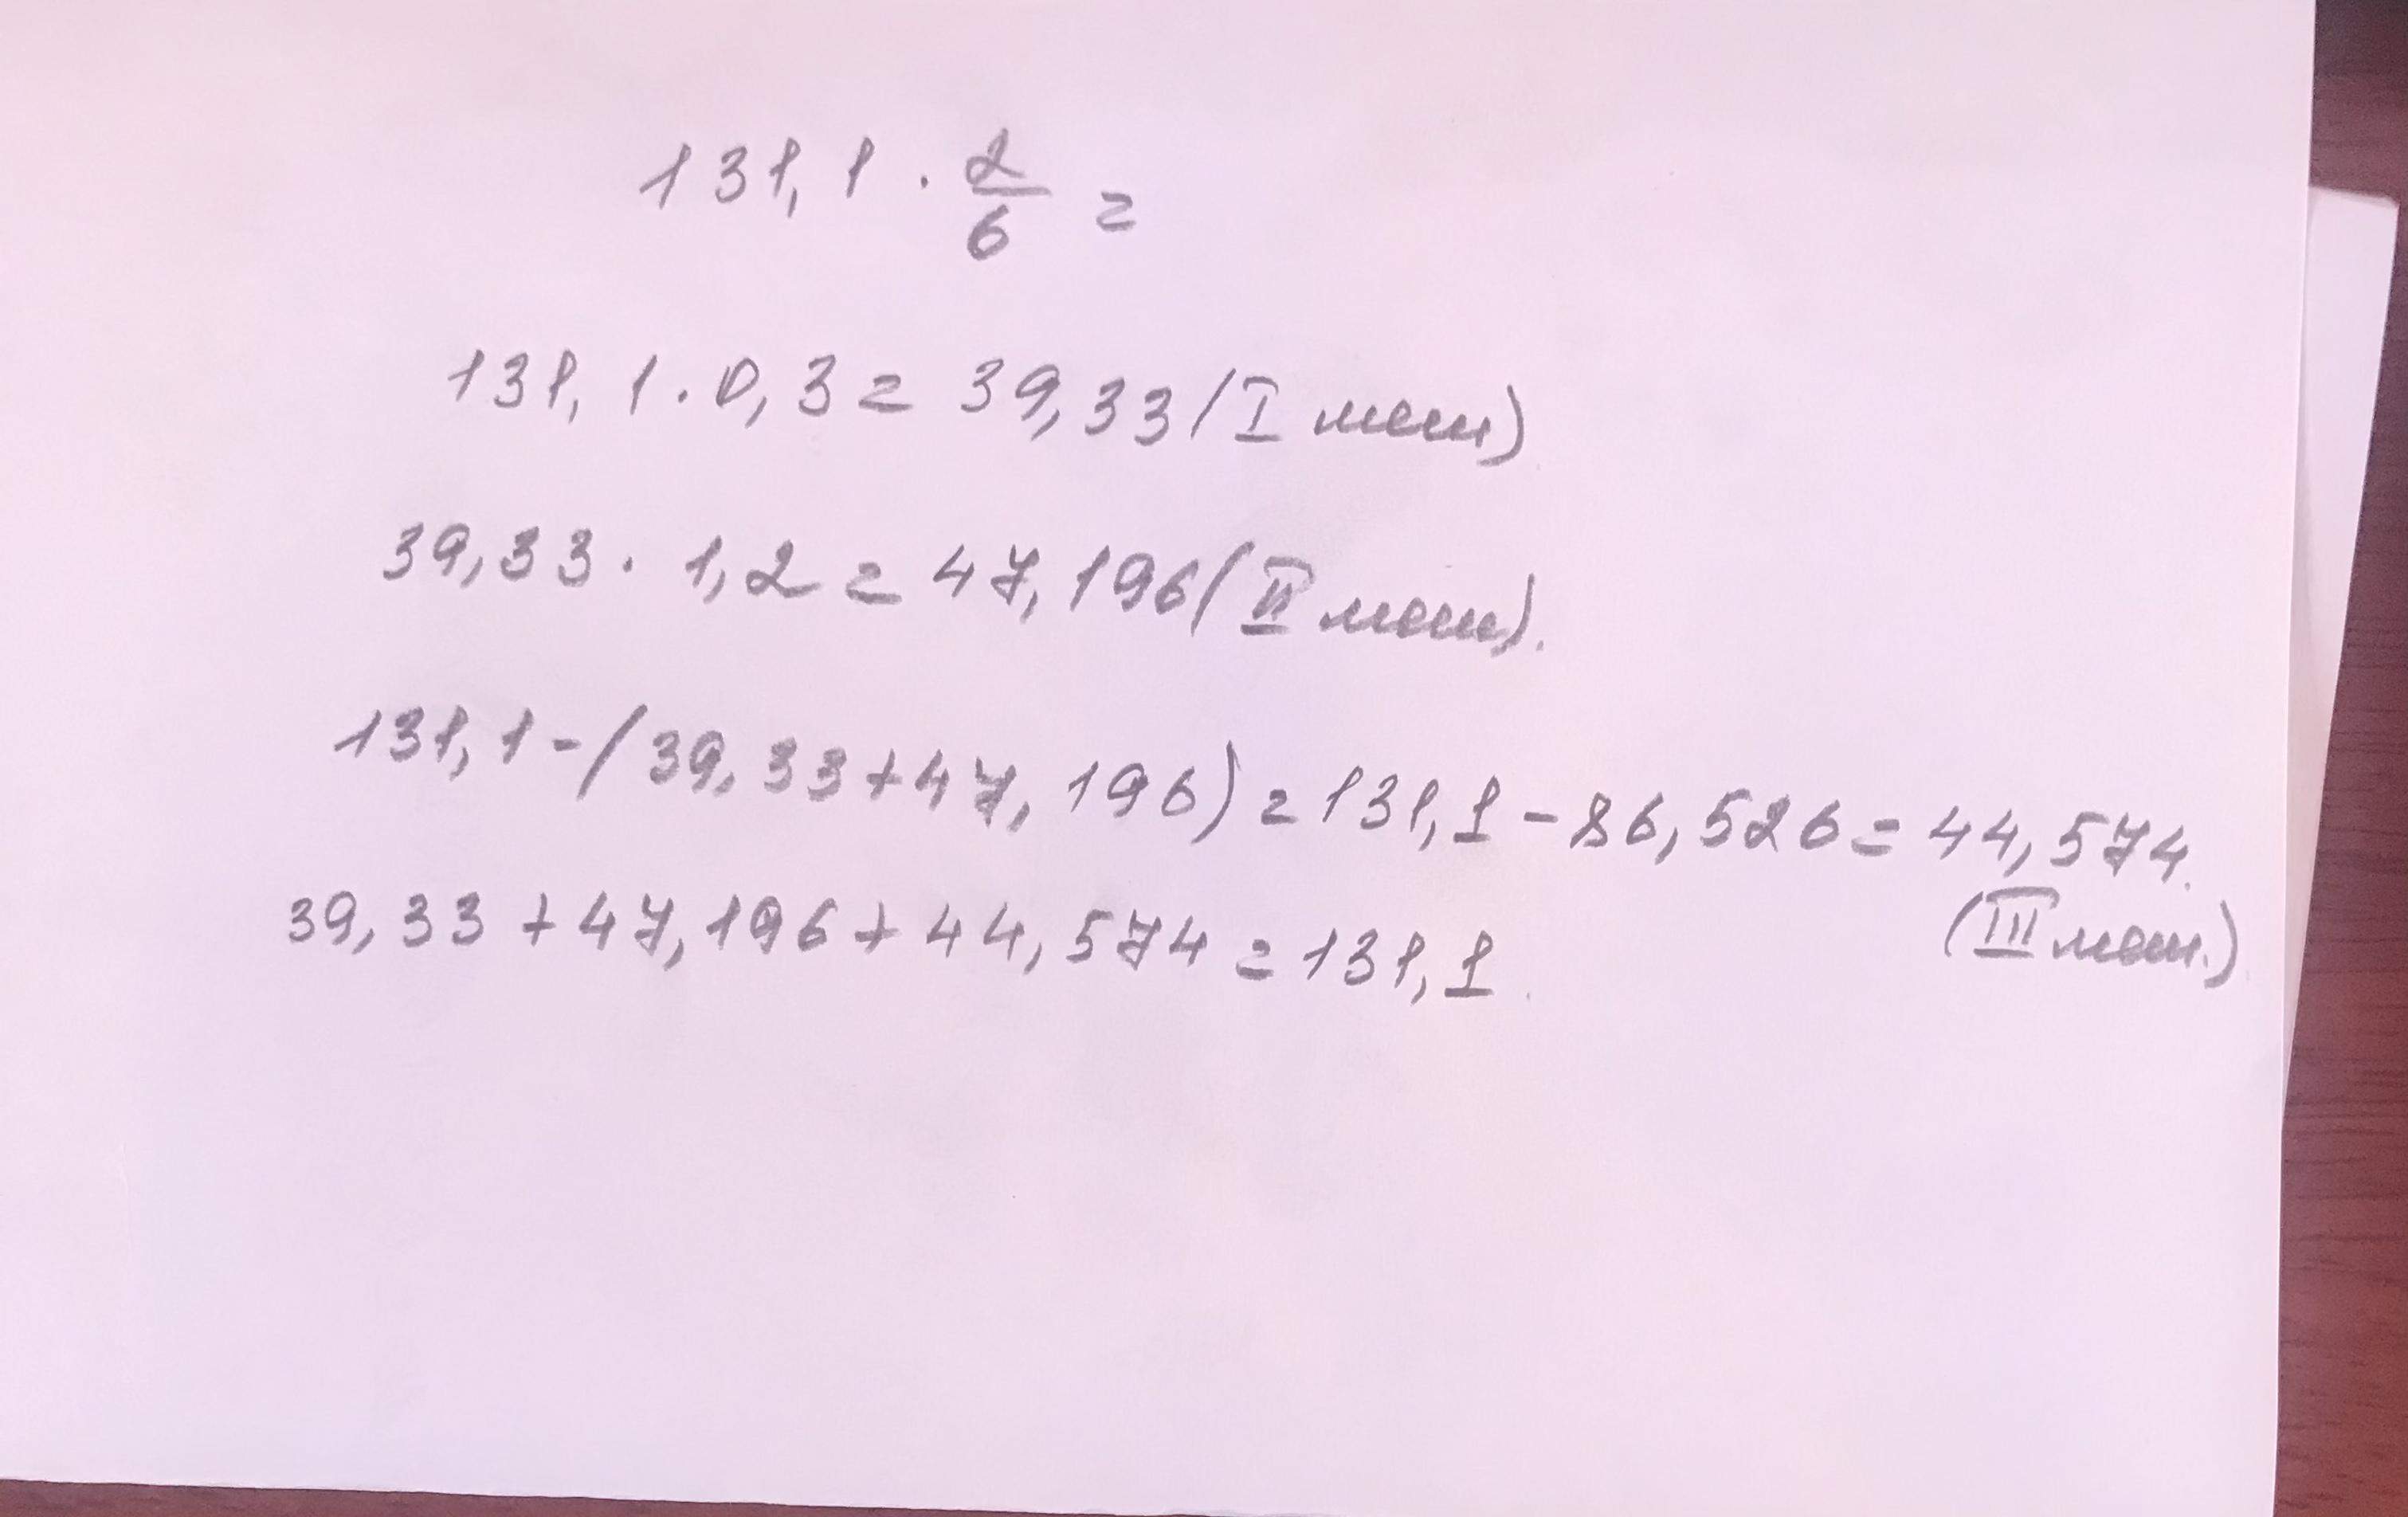 131,1 · 2/6 =
131,1 · 0,3 = 39,33 (I меш)
39,33 · 1,2 = 47,196 (II меш).
131,1 - (39,33 + 47,196) = 131,1 - 86,526 = 44,574.
(III меш.)
39,33 + 47,196 + 44,574 = 131,1.